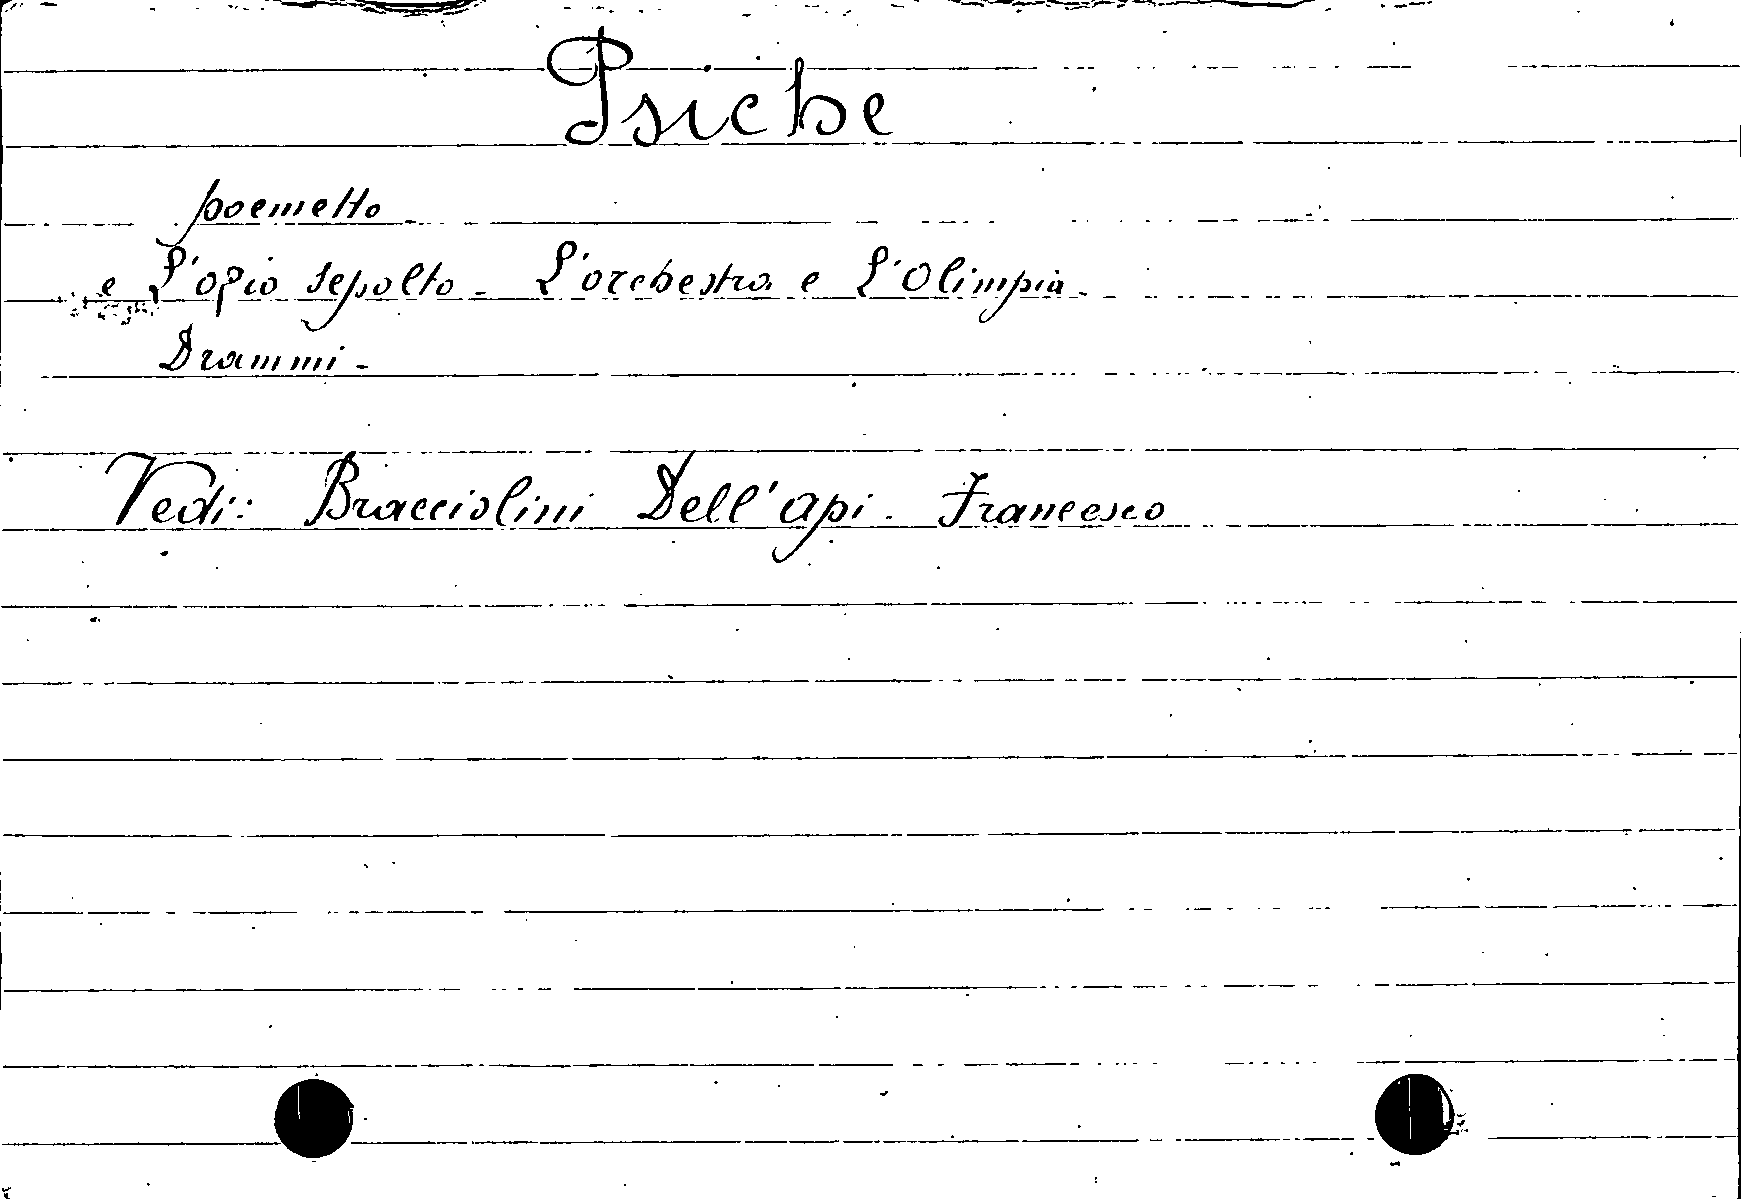 Psiche
poemetto
e L'ozio sepolto - L'orchestra e L'Olimpia -
Drammi -
Vedi: Bracciolini Dell'api. Francesco